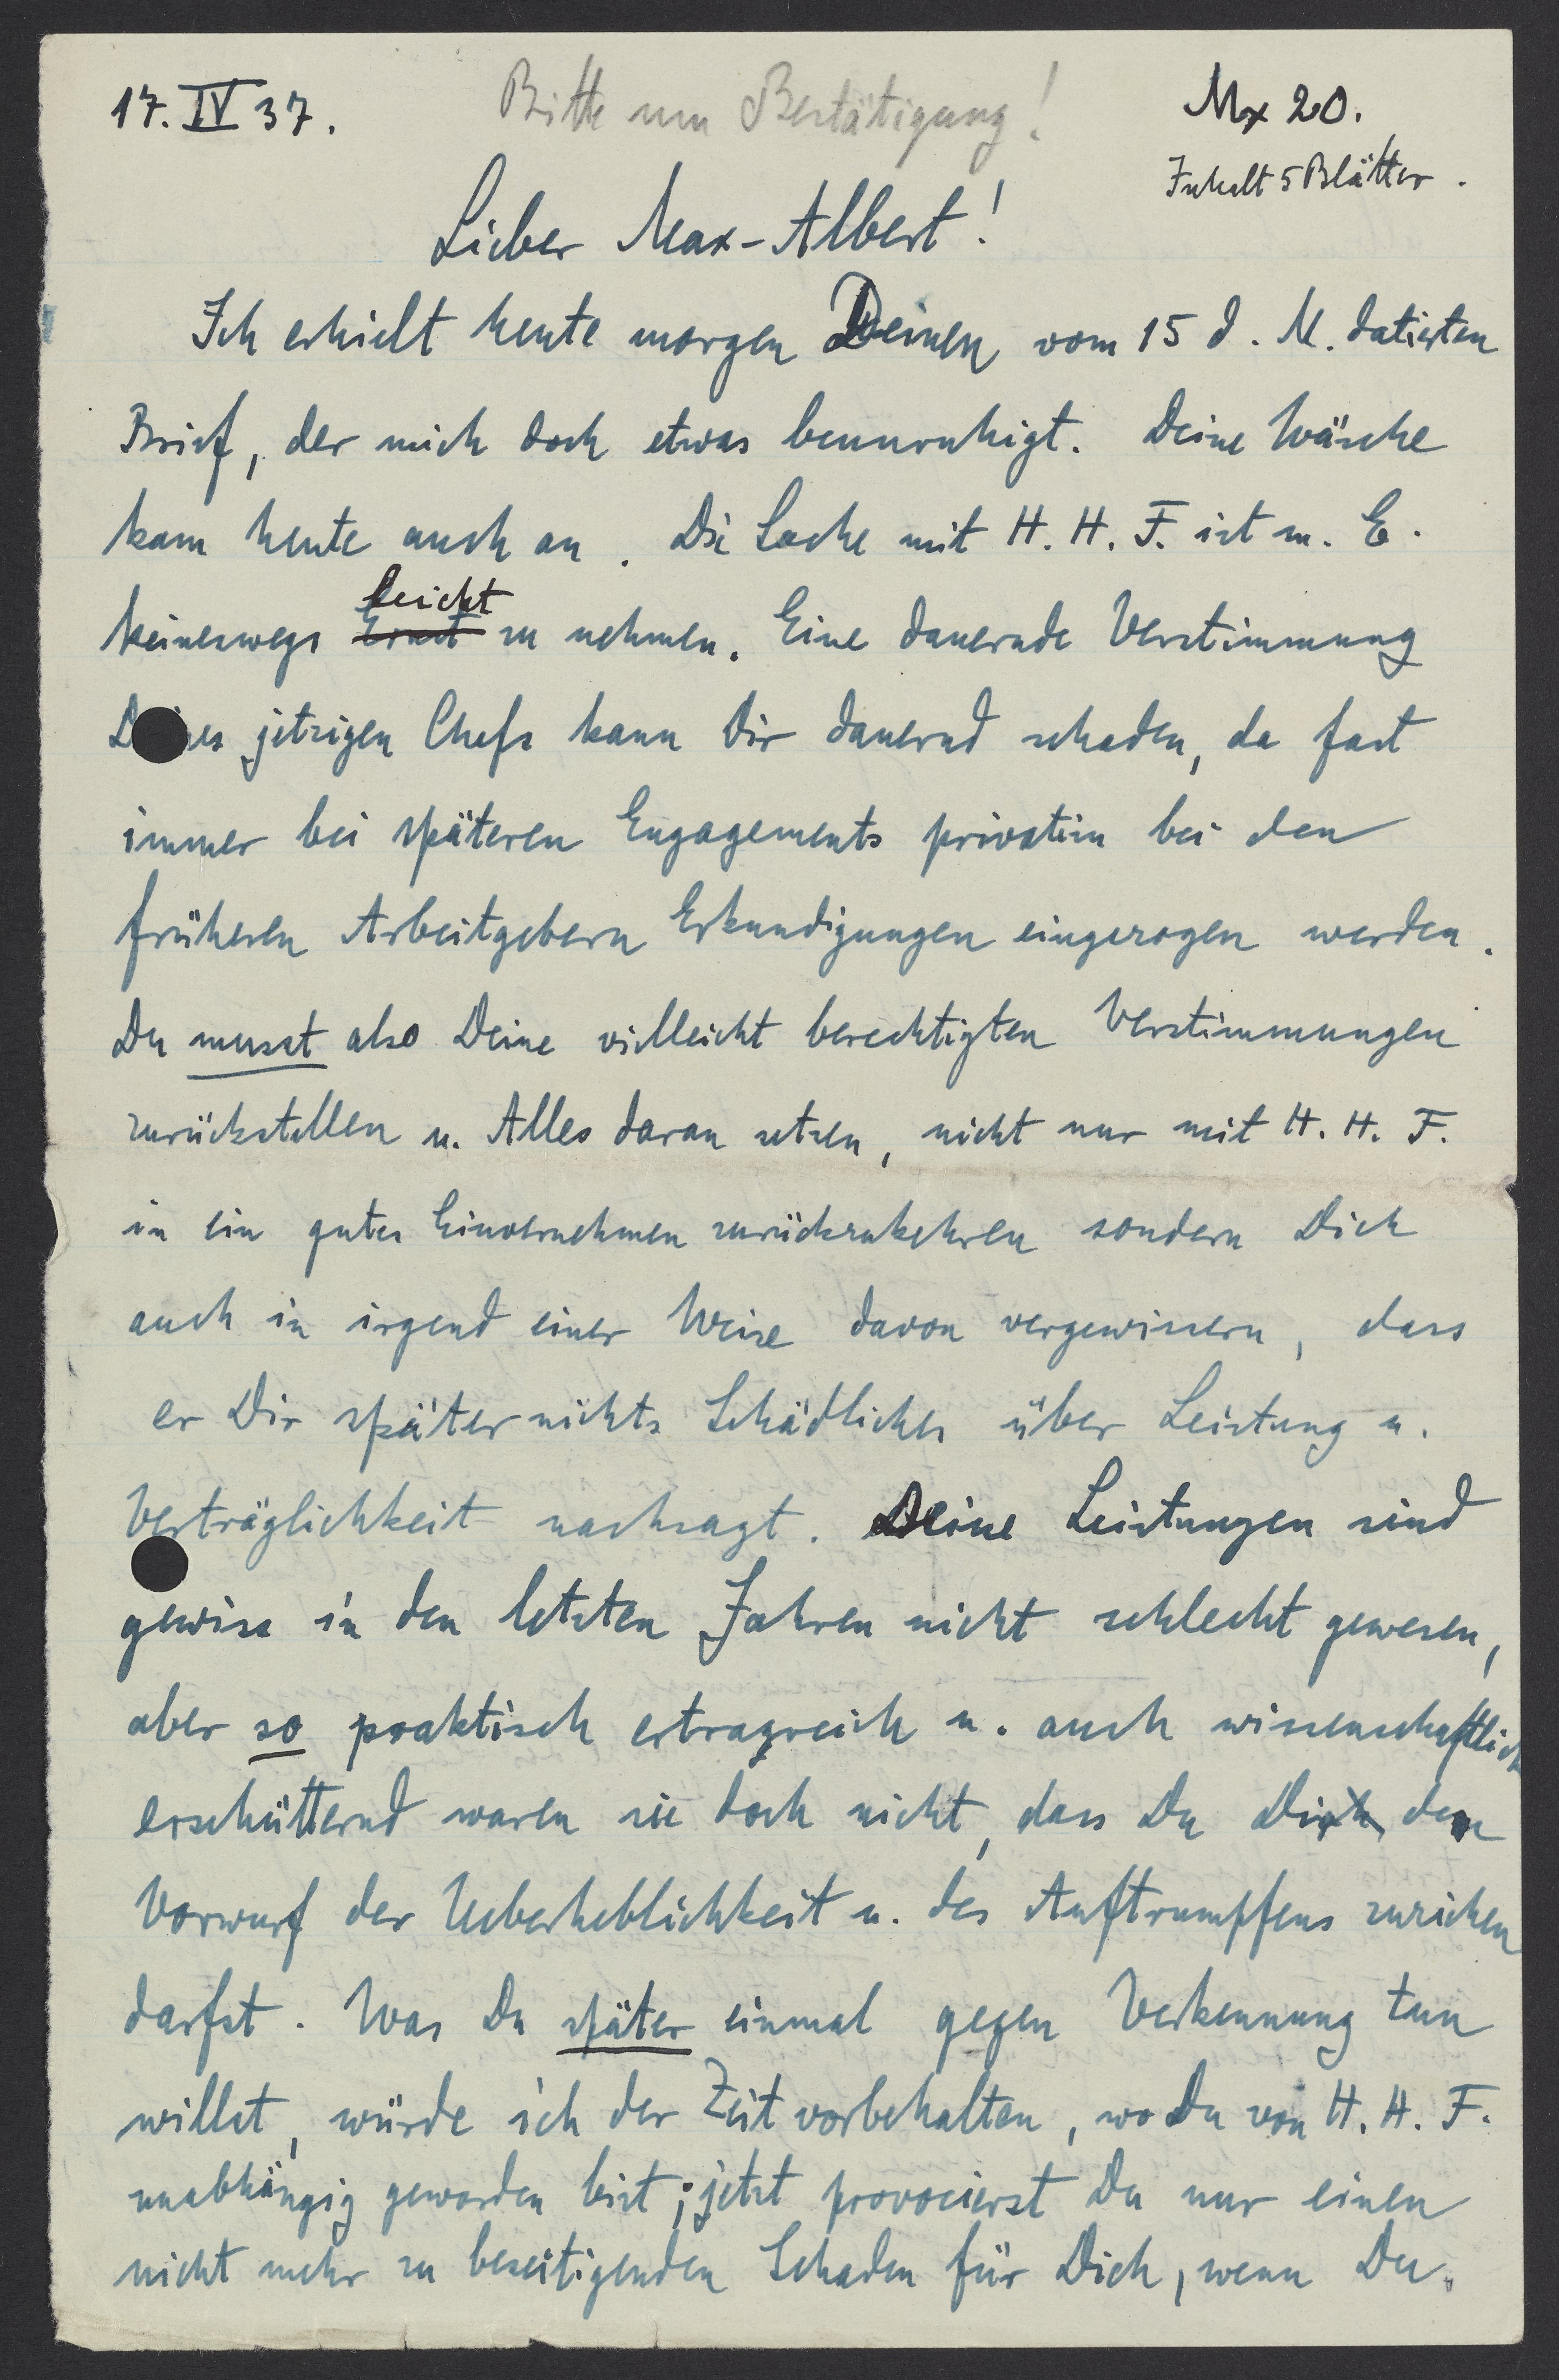 17. IV 37.
Bitte um Bestätigung!
Mx 20.
Inhalt 5 Blätter.
Lieber Max-Albert!
Ich erhielt heute morgen Deinen vom 15 d. M. datierten
Brief, der mich doch etwas beunruhigt. Deine Wäsche
kam heute auch an. Die Sache mit H. H. F. ist m. E.
leicht
keineswegs Ernst zu nehmen. Eine dauernde Verstimmung
D es jetzigen Chefs kann Dir dauernd schaden, da fast
immer bei späteren Engagements privatim bei den
früheren Arbeitgebern Erkundigungen eingezogen werden.
Du musst also Deine vielleicht berechtigten Verstimmungen
zurückstellen u. Alles daran setzen, nicht nur mit H. H. F.
in ein gutes Einvernehmen zurückzukehren sondern Dich
auch in irgend einer Weise davon vergewissern, dass
er Dir später nichts Schädliches über Leistung u.
Verträglichkeit nachsagt. Deine Leistungen sind
gewiss in den letzten Jahren nicht schlecht gewesen,
aber so praktisch ertragreich u. auch wissenschaftlich
erschütternd waren sie doch nicht, dass Du Dir den
Vorwurf der Ueberheblichkeit u. des Auftrumpfens zuziehen
darfst. Was Du später einmal gegen Verkennung tun
willst, würde ich der Zeit vorbehalten, wo Du von H. H. F.
unabhängig geworden bist; jetzt provocierst Du nur einen
nicht mehr zu beseitigenden Schaden für Dich, wenn Du